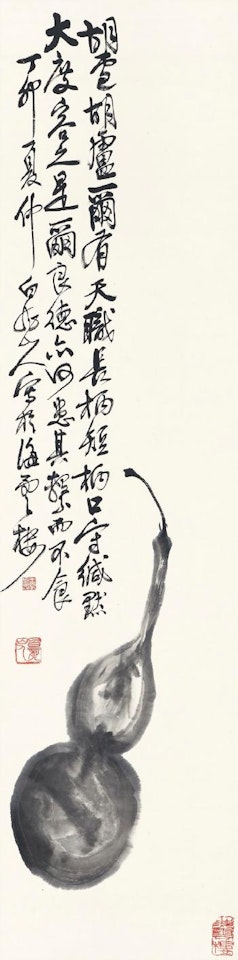 胡盧胡盧爾有天職長柄短柄口守緘默
大度容之是爾良德亦何患其繫而不食
丁卯夏仲白龍山人寫於海雲樓